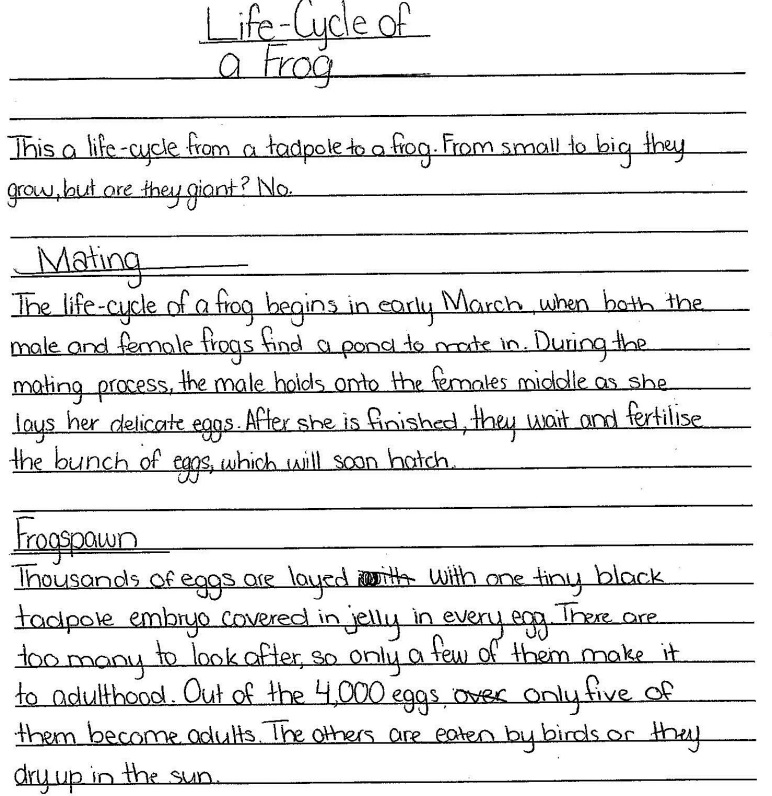 Life-Cycle of
a Frog
This a life-cycle from a tadpole to a frog. From small to big they
grow, but are they giant? No.
Mating
The life-cycle of a frog begins in early March, when both the
male and female frogs find a pond to mate in. During the
mating process, the male holds onto the females middle as she
lays her delicate eggs. After she is finished, they wait and fertilise
the bunch of eggs, which will soon hatch.
Frogspawn
Thousands of eggs are layed with with one tiny black
tadpole embryo covered in jelly in every egg. There are
too many to look after, so only a few of them make it
to adulthood. Out of the 4,000 eggs, over only five of
them become adults. The others are eaten by birds or they
dry up in the sun.